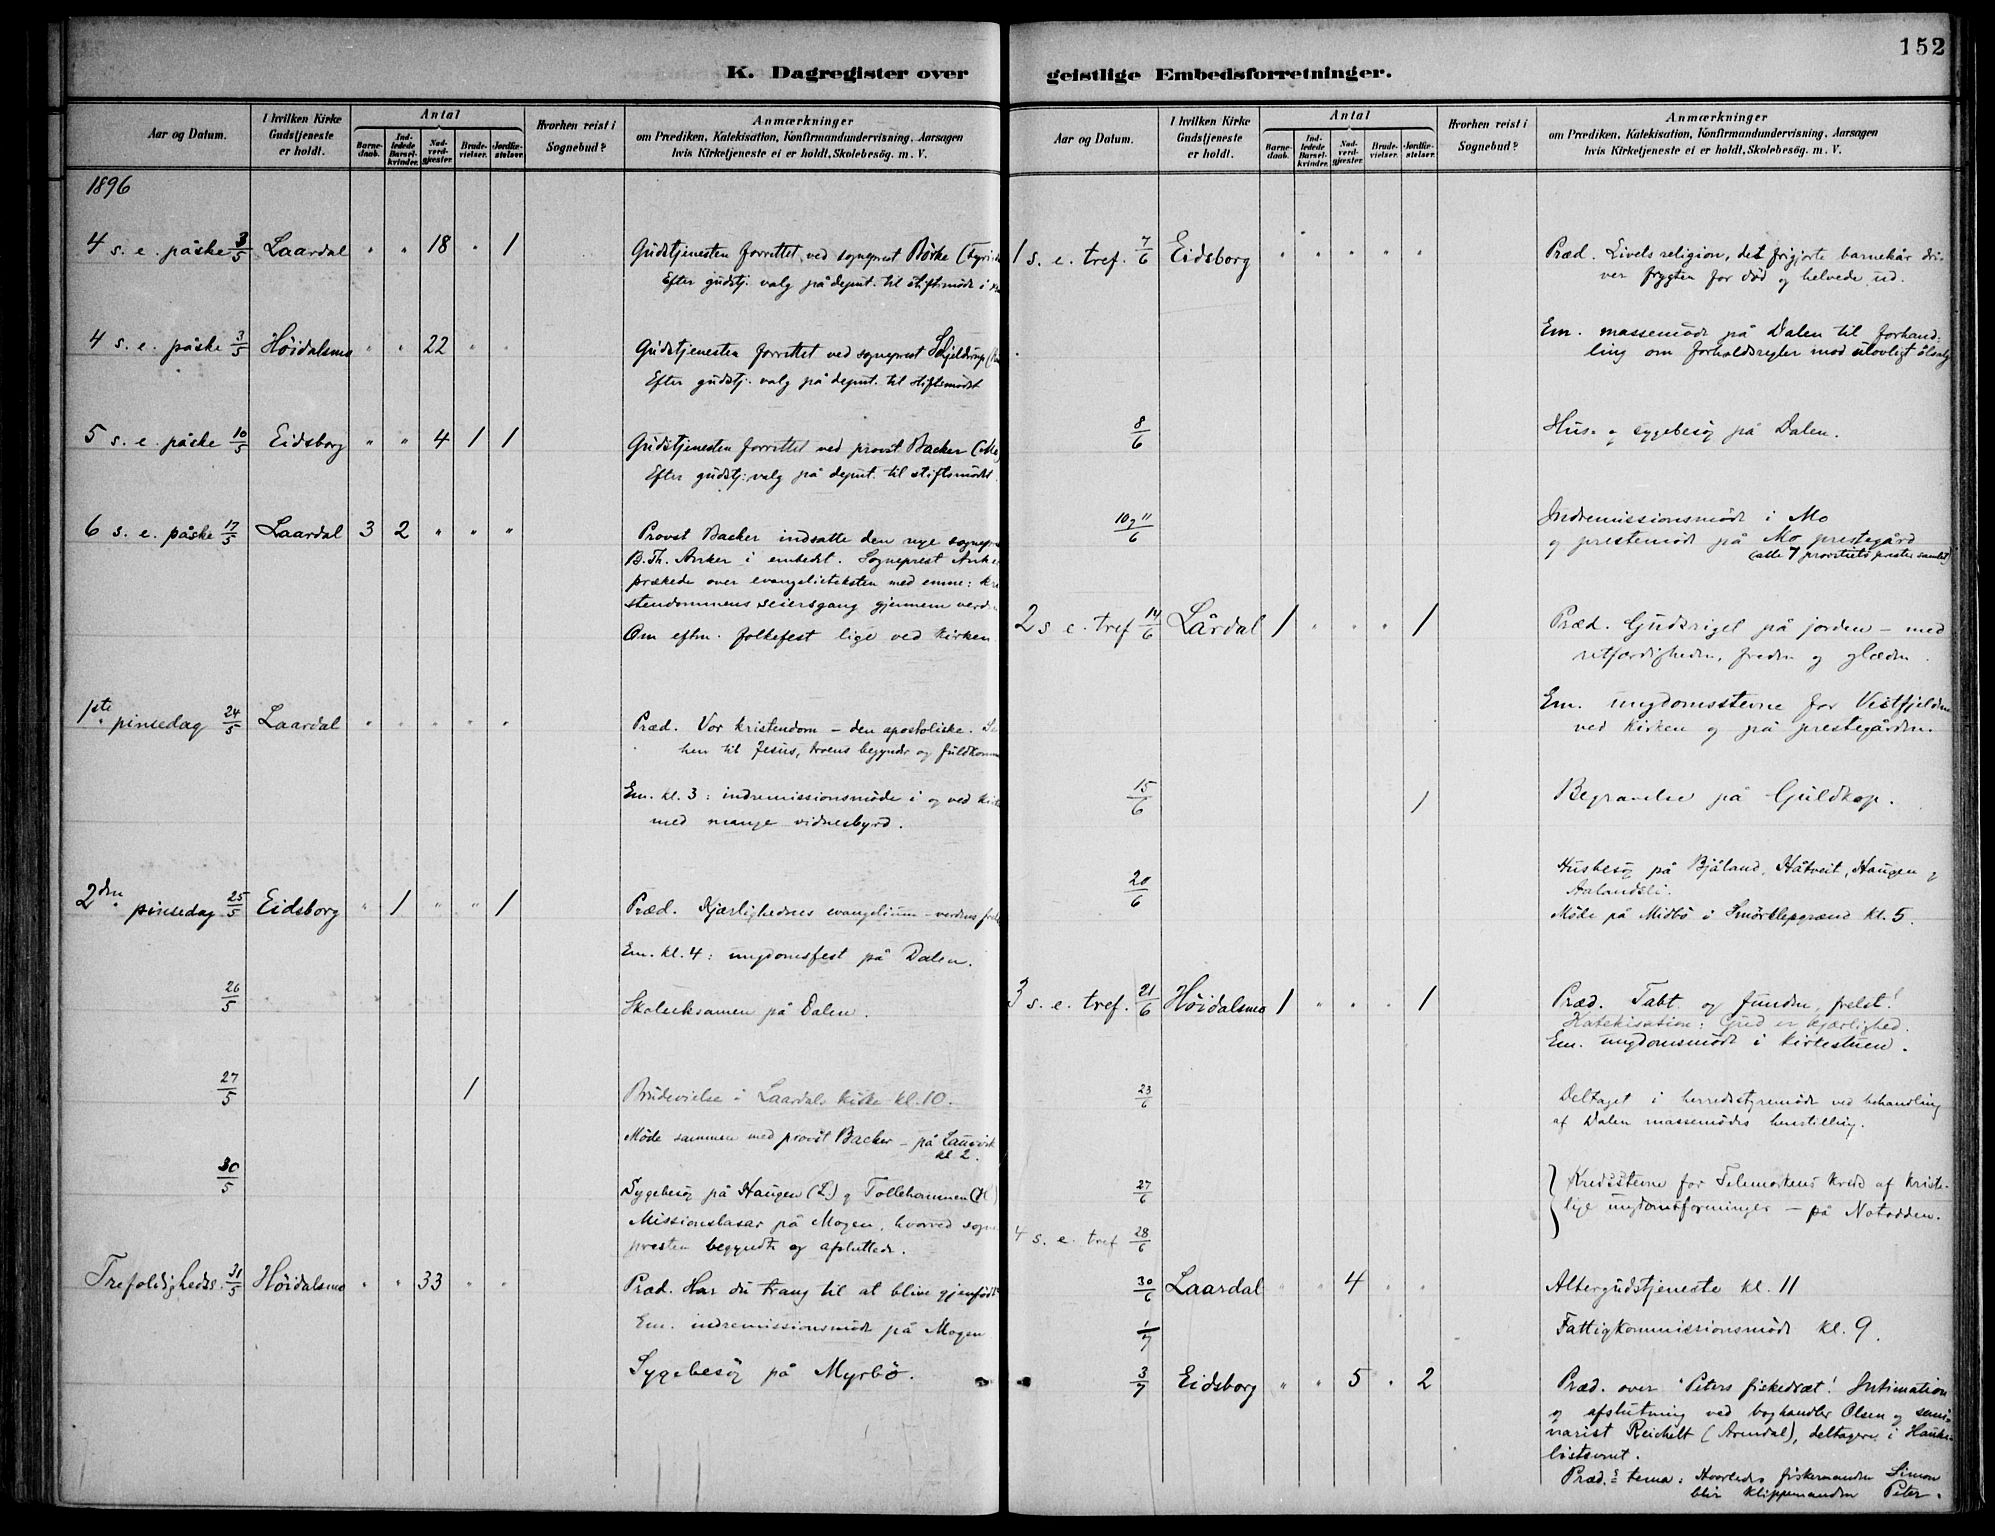 152
K. Dagregister over geistlige Embedsforretninger.
Aar og Datum.
I hvilken Kirke Gudstjeneste er holdt.
Antal
Barne-daab.
Ind-ledede Barsel-kvinder.
Nad-verd-gjester.
Brude-vielser.
Jordfæ-stelser.
Hvorhen reist i Sognebud?
Anmærkninger
om Prædiken, Katekisation, Konfirmandundervisning, Aarsagen
hvis Kirketjeneste ei er holdt, Skolebesøg. m. V.
1896
4 s. e. påske 3/5 Laardal " " 18 " 1 Gudstjenesten forrettet ved sogneprest Børke
Efter gudstj. valg på deput. til stiftsmøde i
4 s. e. påske 3/5 Höidalsmo " " 22 " " Gudstjenesten forrettet ved sogneprest Schjelderup
Efter gudstj. valg på deput. til stiftsmødet
5 s. e. påske 10/5 Eidsborg " " 4 1 1 Gudstjenesten forrettet ved provst Backer (Mo
Efter gudstj. valg på deput. til stiftsmødet.
6 s. e. påske 17/5 Laardal 3 2 " " " Provst Backer indsatte den nye sognepre
B. Th. Anker i embedet. Sogneprest Anke
prækede over evangelieteksten med emne: Kri
stendommens seiersgang gjennem verd
Om eftm. folkefest lige ved kirken
1ste pinsedag 24/5 Laardal " " " " " Præd. Vor kristendom – den apostoliske. Se
hen til Jesus, troens begynder og fuldkomm
Em. kl. 3: indremissionsmøde i og ved kirk
med mange vidnesbyrd.
2den pinsedag 25/5 Eidsborg " 1 " " 1 Præd. Kjærlighedens evangelium – verdens
Em. kl. 4: ungdomsfest på Dalen.
26/5 Skoleeksamen på Dalen.
27/5 1 Brudevielse i Laardals kirke kl. 10.
Møde sammen med provst Backer – på Lauvvik
kl. 2.
30/5 Sygebesög på Haugen (L.) og Tollehommen (H)
Missionsbasar på Mogen, hvorved sogne
presten begyndte og afsluttede.
Trefoldigheds. 31/5 Höidalsmo " " 33 " " Præd. Har du trang til at blive gjenfödt
Em. indremissionsmöde på Mogen
Sygebesög på Myrbö.
Aar og Datum.
I hvilken Kirke Gudstjeneste er holdt.
Antal
Barne-daab.
Ind-ledede Barsel-kvinder.
Nad-verd-gjester.
Brude-vielser.
Jordfæ-stelser.
Hvorhen reist i Sognebud?
Anmærkninger
om Prædiken, Katekisation, Konfirmandundervisning, Aarsagen
hvis Kirketjeneste ei er holdt, Skolebesøg. m. V.
1 s. e. tref. 7/6 Eidsborg " " " " " Præd. Livets religion, det frigjorte barnekår dri-
ver frygten for död og helvede ud.
Em. massemöde på Dalen til forhand-
ling om forholdsregler mod ulovligt ölsalg
8/6 Hus- og sygebesög på Dalen.
10 og 11/6 Indremissionsmöde i Mo
og prestemöde på Mo prestegård
(alle 7 provstiets prester samlet)
2 s. e. tref 14/6 Lårdal 1 " " " 1 Præd. Gudsriget på jorden – med
retfærdigheden, freden og glæden.
Em. ungdomsstevne for Vestfjeldene
ved kirken og på prestegården.
15/6 1 Begravelse på Guldkop.
20/6 Husbesög på Bjåland, Håtveit, Haugen og
Aalandsli.
Möde på Midbö i Smörklepgrænd kl. 5.
3 s. e. tref. 21/6 Höidalsmo 1 " " " 1 Præd. Tabt og funden, frelst!
Katekisation: Gud er kjærlighed.
Em. ungdomsmöde i kirkestuen.
23/6 Deltaget i herredsstyremöde ved behandling
af Dalen massemödes henstilling.
27/6 Kredsstevne for Telemarkens kreds af kriste-
4 s. e. tref 28/6 lige ungdomsforeninger – på Notodden.
30/6 Laardal " " 4 " " Altergudstjeneste kl. 11
1/7 Fattigkommissionsmöde kl. 9.
3/7 Eidsborg " " 5 " 2 Præd. over "Peters fiskedræt! Intimation
og afslutning ved boghandler Olsen og semi-
narist Reichelt (Arendal), deltagere i Hauke-
listevnet.
Præd.s tema: Hvorledes fiskermanden Simon
blir klippemanden Peter.